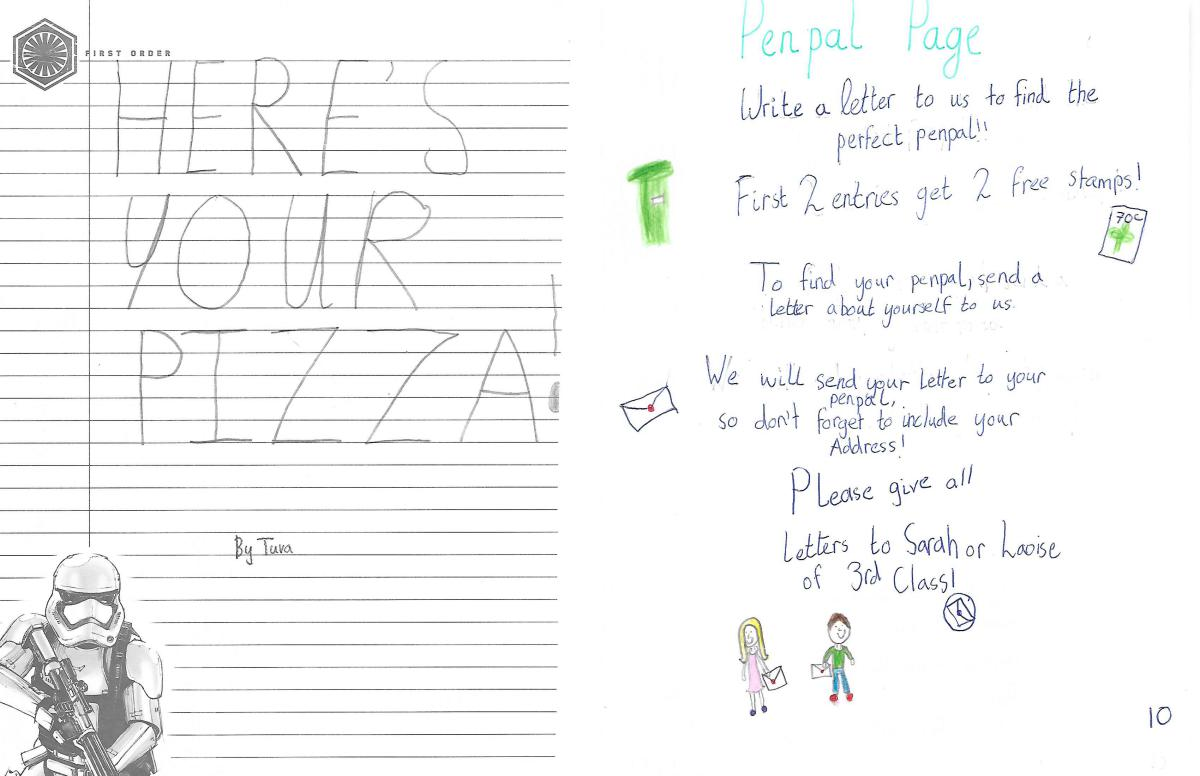 FIRST ORDER
HERE'S
YOUR
PIZZA!
By Tuva
Penpal Page
Write a letter to us to find the
perfect penpal!!
First 2 entries get 2 free stamps!
70c
To find your penpal, send a
letter about yourself to us.
We will send your letter to your
penpal,
so don't forget to include your
Address!
Please give all
Letters to Sarah or Laoise
of 3rd Class!
10